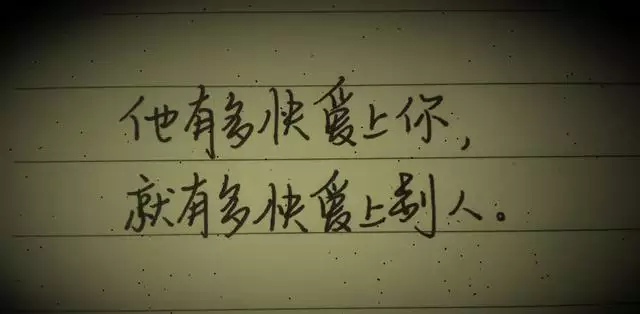 他有多快爱上你，
就有多快爱上别人。